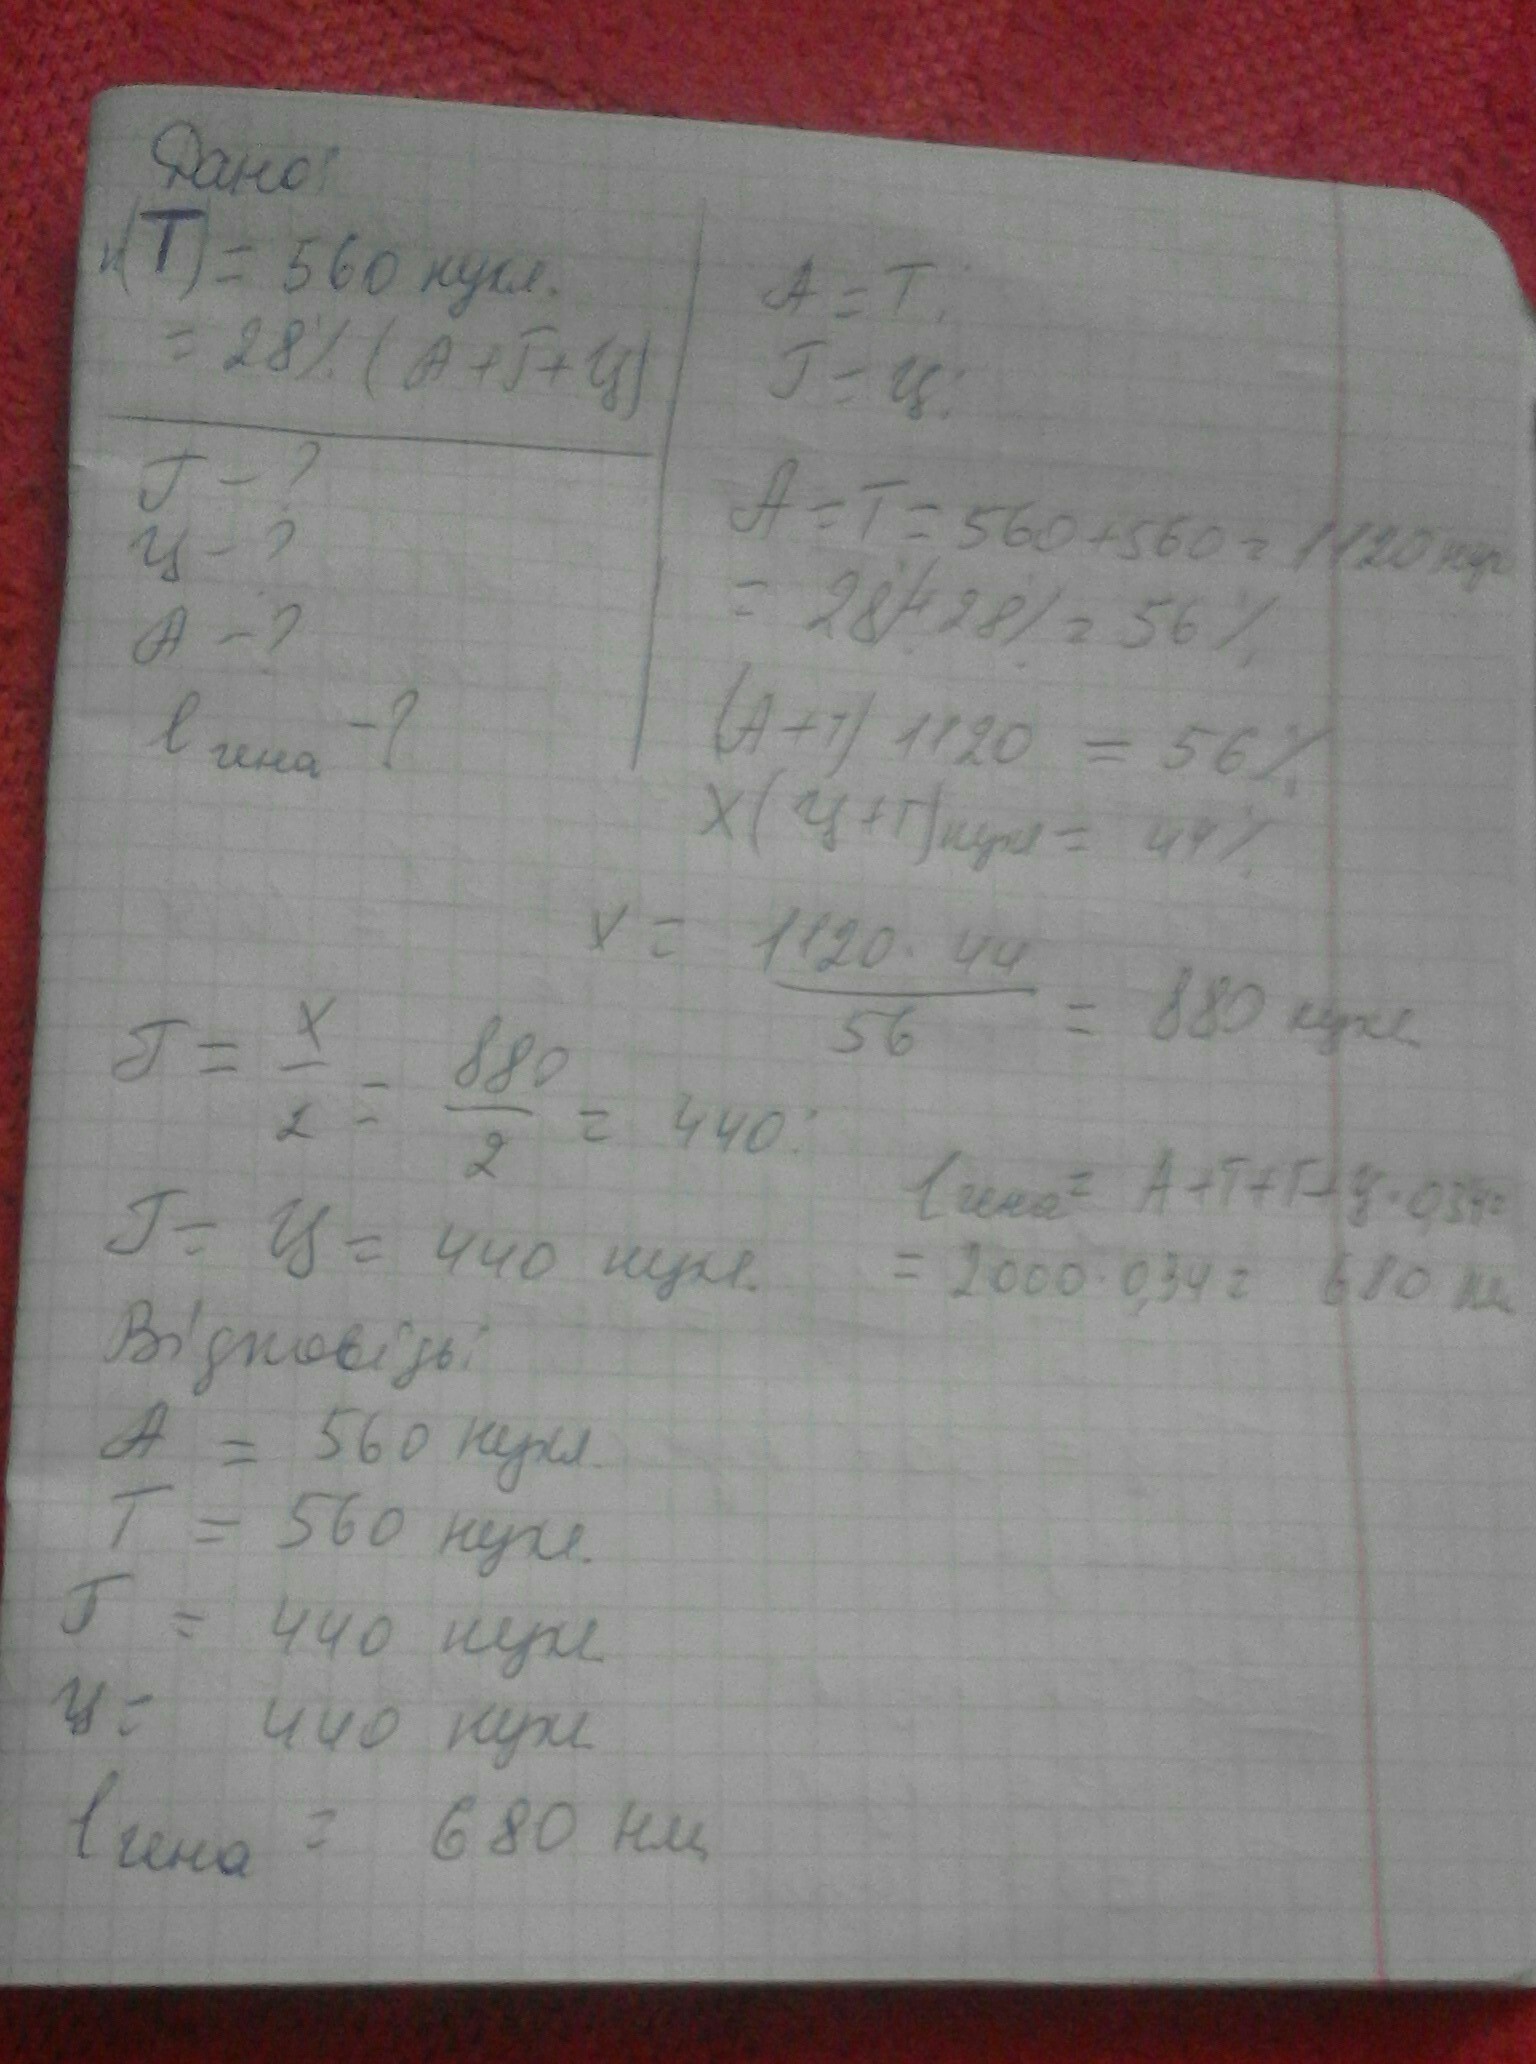 Дано:
n(Т) = 560 нукл.
= 28% (А+Г+Ц)
Г - ?
Ц - ?
А - ?
l гена - ?
А = Т.
Г = Ц.
А = Т = 560+560 = 1120 нук
= 28%+28% = 56%
(А+Т) 1120 = 56%
х(Ц+Г) нукл = 44%
х = 1120 · 44 / 56 = 880 нукл
Г = х / 2 = 880 / 2 = 440.
Г = Ц = 440 нукл.
l гена = А+Т+Г+Ц · 0,34 =
= 2000 · 0,34 = 680 нм
Відповідь:
А = 560 нукл.
Т = 560 нукл.
Г = 440 нукл
Ц = 440 нукл
l гена = 680 нм